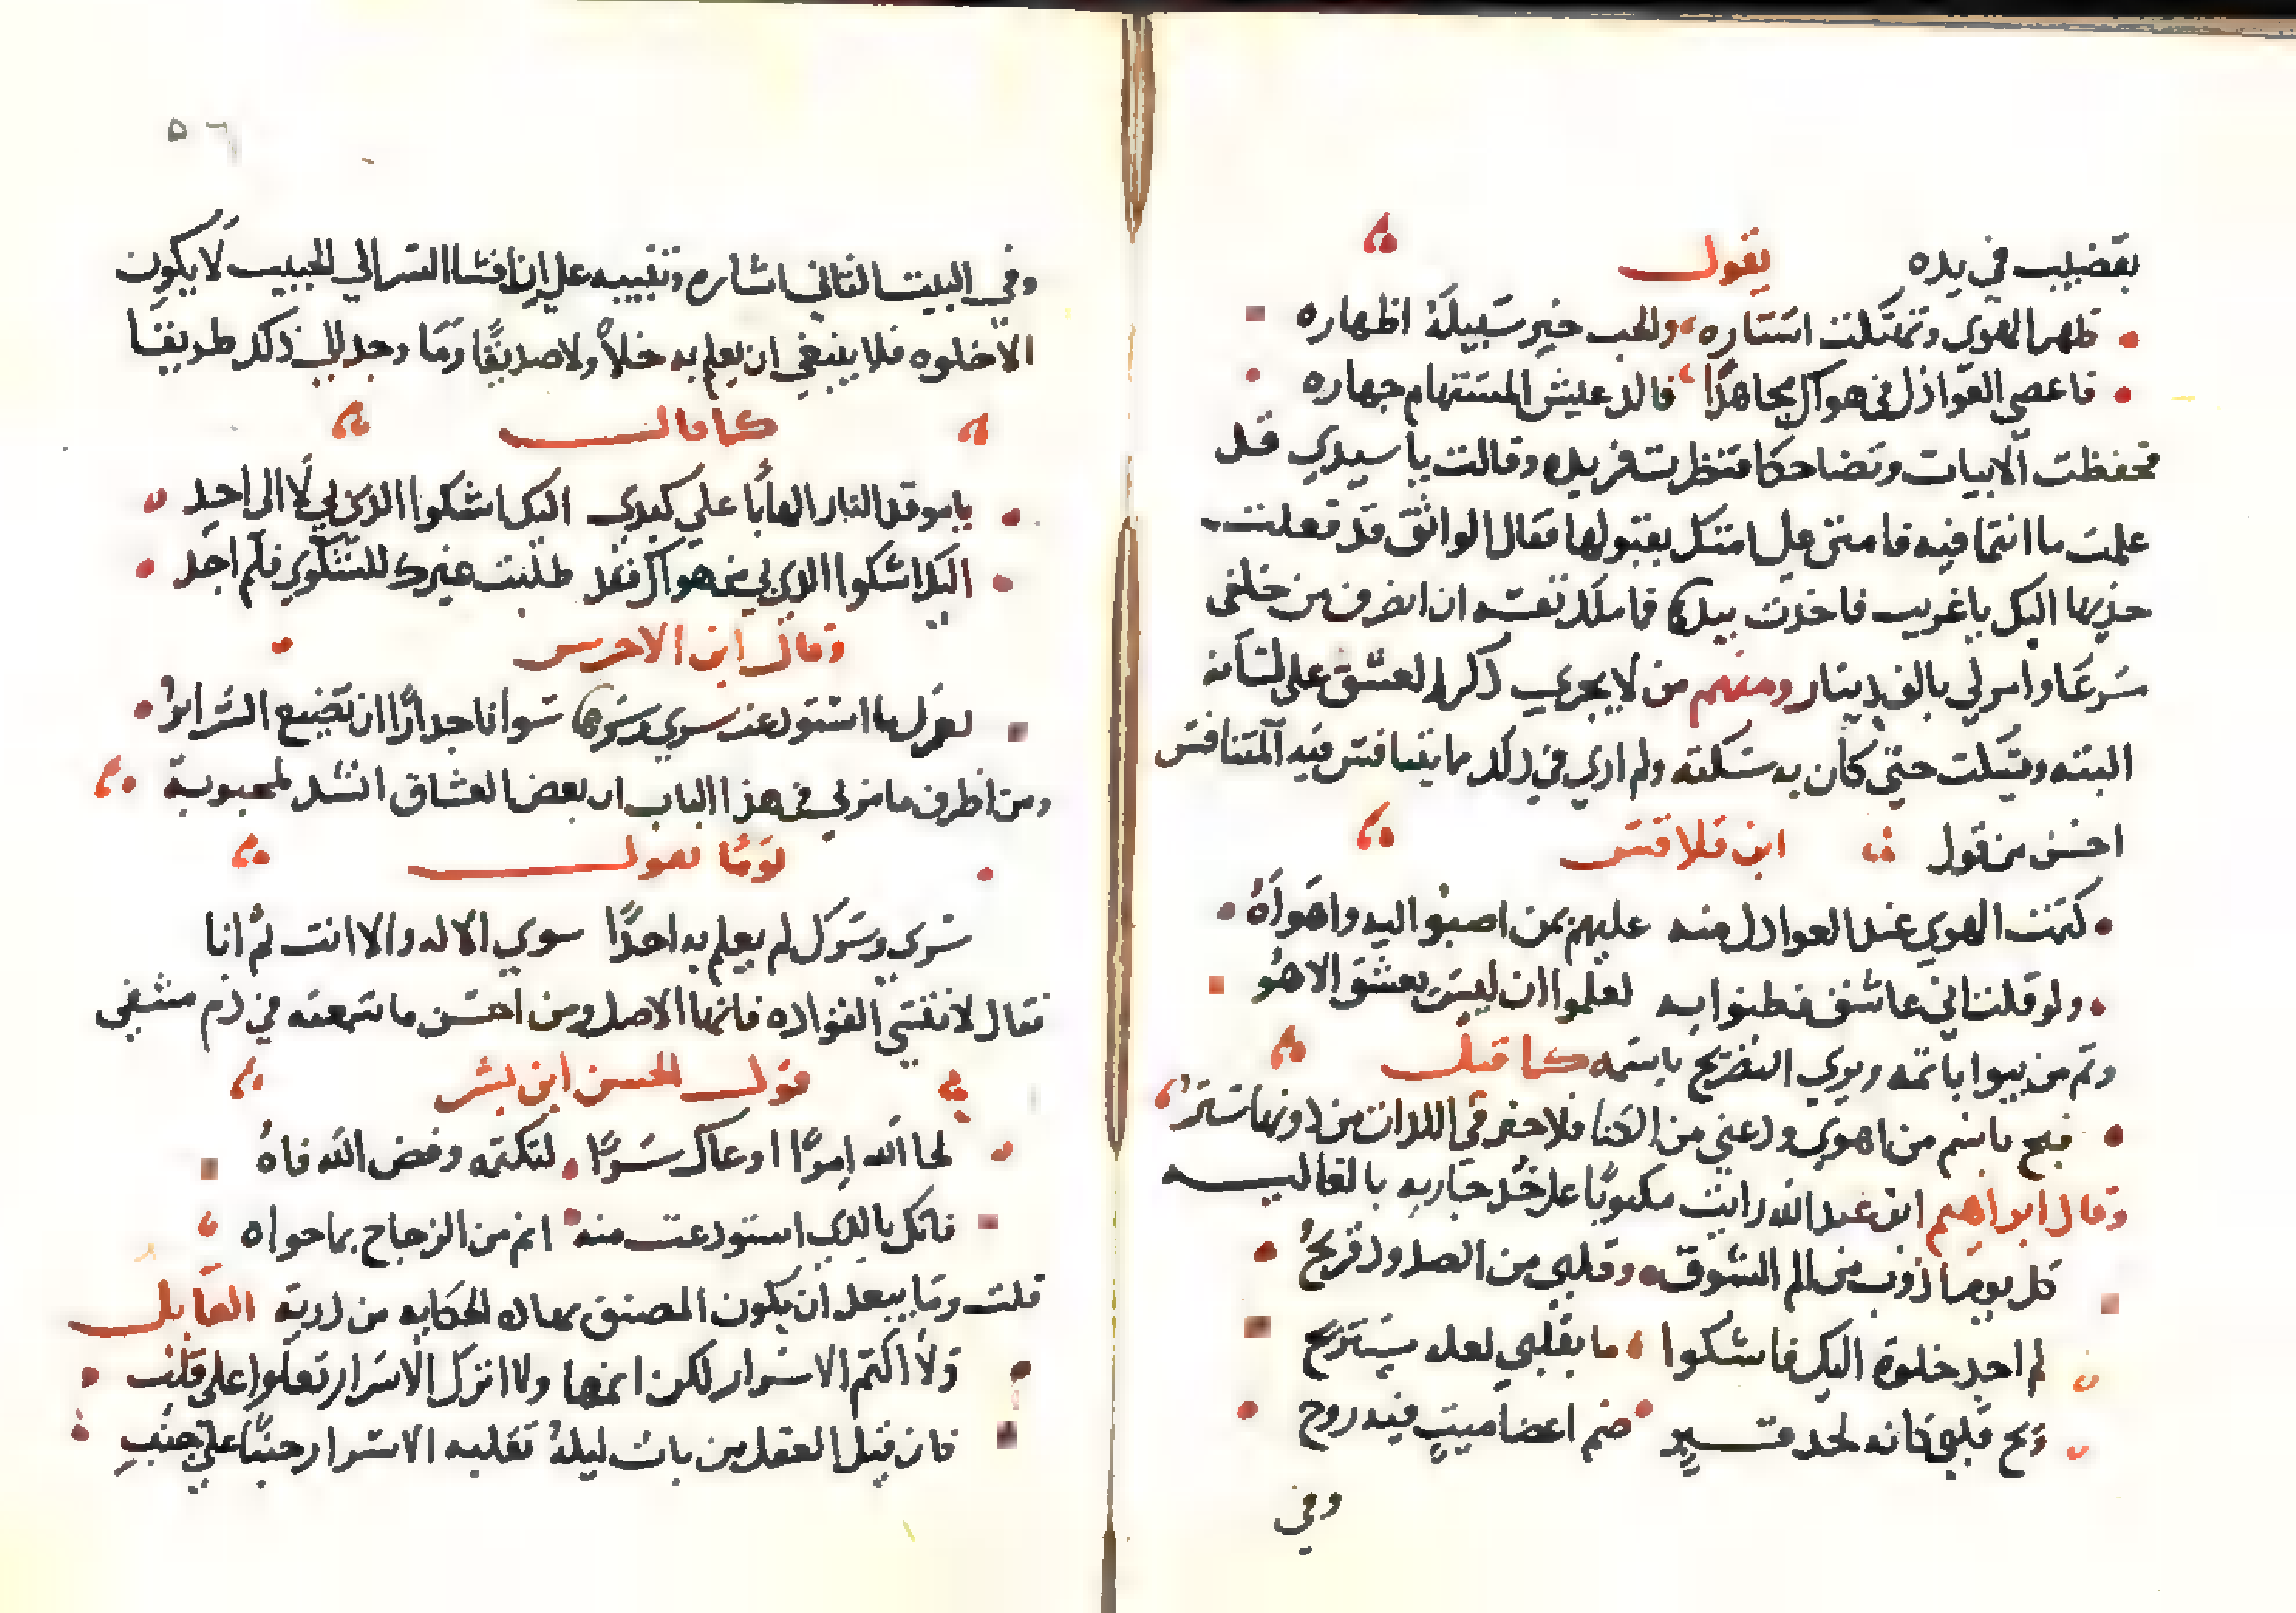 بقضيب في يده يقول
ظهر الهوى وتهتكت استاره والحب خير سبيله اظهاره
فاعصي العواذل في هواك مجاهدا فالد عيش المستهام جهاره
فحفظت الابيات وتضاحكا فنظرت فريده وقالت يا سيدي قد
علمت ما انتما فيه فامنن علي امتك بقبولها فقال الواثق قد فعلت
خذيها اليك يا غريب فاخدت بيدها فما ملك نفسه ان انصرف من خلفي
سرعا وامر لي بالف دينار ومنهم من لا يجري ذكر العشق على لسانه
البته ويسكت حتى كان به سكته ولم اري في ذلك ما يتنافس فيه المتنافس
احسن من قول ابن قلاقس
كتمت الهوي عند العوادل منه عليهم بمن اصبوا اليه واهواه
ولو قلت اني عاشق فطنوا به لعلموا ان ليس يعشق الا هو
وثم من يبوا باتمه ويري التصريح باسمه كما قيل
فبح باسم من اهوي ودعني من الكنا فلا خير في اللدات من دونها ستر
وقال ابراهيم ابن عبد الله رايت مكتوبا على خد جاريه بالغاليه
كل يوما اذوب من الم الشوق وقلبي من الصدود قريح
لم اجد خلوة اليك فاشكوا ما بقلبي لعله يستريح
ويح قلبي كانه لحد قبر ضم اعضا ميت فيه روح
وفي
٥٦
وفي البيت الثاني اشاره وتنبيه علي ان افشا السر الي الحبيب لا يكون
الا خلوه فلا ينبغي ان يعلم به خلا ولا صديقا وما وجد الي ذلك طريقا
كما قال
يا موقد النار الهابا علي كبدي اليك اشكوا الدي بي لا الى احد
اليك اشكوا الدي بي من هواك فقد طلبت غيرك للشكوي فلم اجد
وقال ابن الاحرس
لعزل ما استودعت سري وسرها سوانا حدارا ان تضيع السرائر
ومن اظرف ما مر لي في هذا الباب ان بعض العشاق انشد لمحبوبة
يوما يقول
سري وسرك لم يعلم به احدا سوي الاله والا انت ثم انا
فقال لا تنسي القواده فانها الاصل ومن احسن ما سمعته في ذم مشفي
قول الحسن ابن بشر
لحا الله امرا اوعاك سرا لتكتمه وفض الله فاه
فانك بالدي استودعت منه انم من الزجاج بما حواه
قلت وما يبعد ان يكون المصنق بهاده الحكايه من درية القايل
ولا اكتم الاسرار لكن انمها ولا اترك الاسرار تعلوا على قلب
فان قليل العقل من بات ليلة تقلبه الاسرار جنبا على جنب